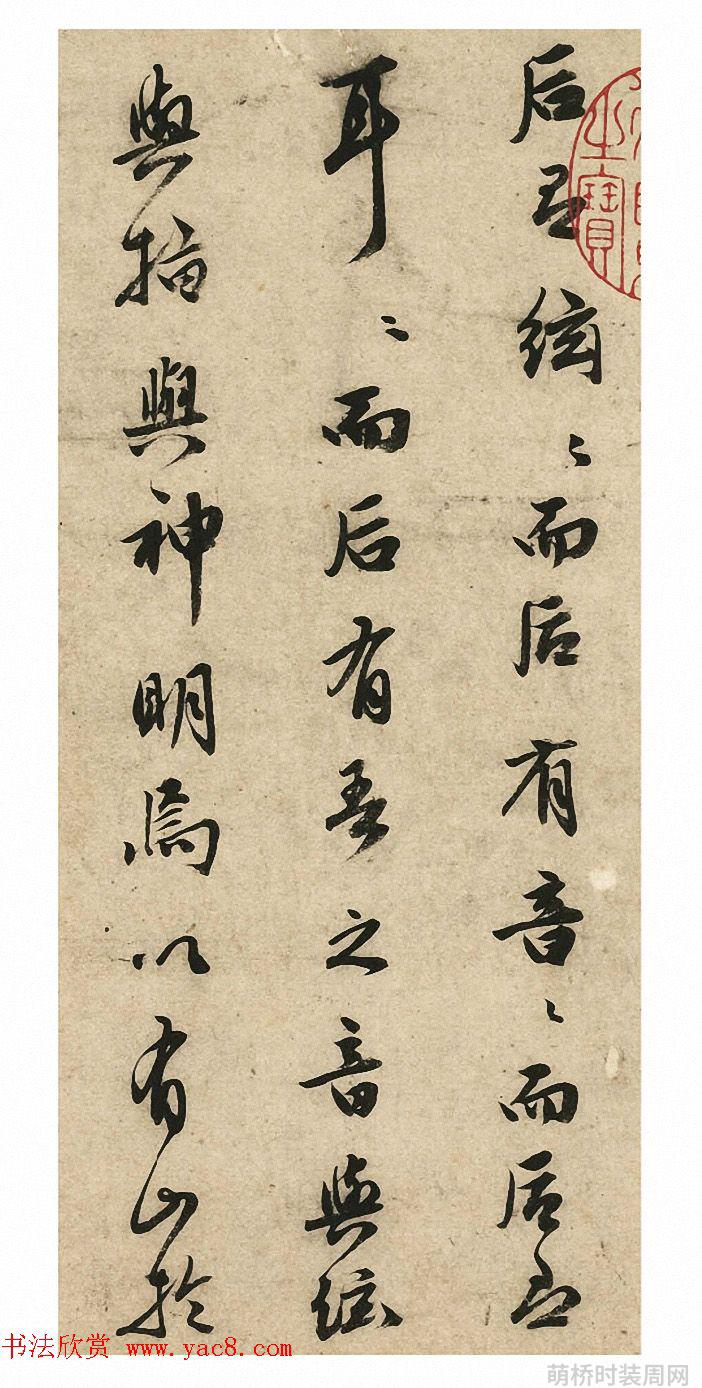 后絃〻而后有音〻而后
耳〻而后有吾之音與絃
與指與神明焉以有山於
之寶
书法欣赏 www.yac8.com
萌桥时装周网